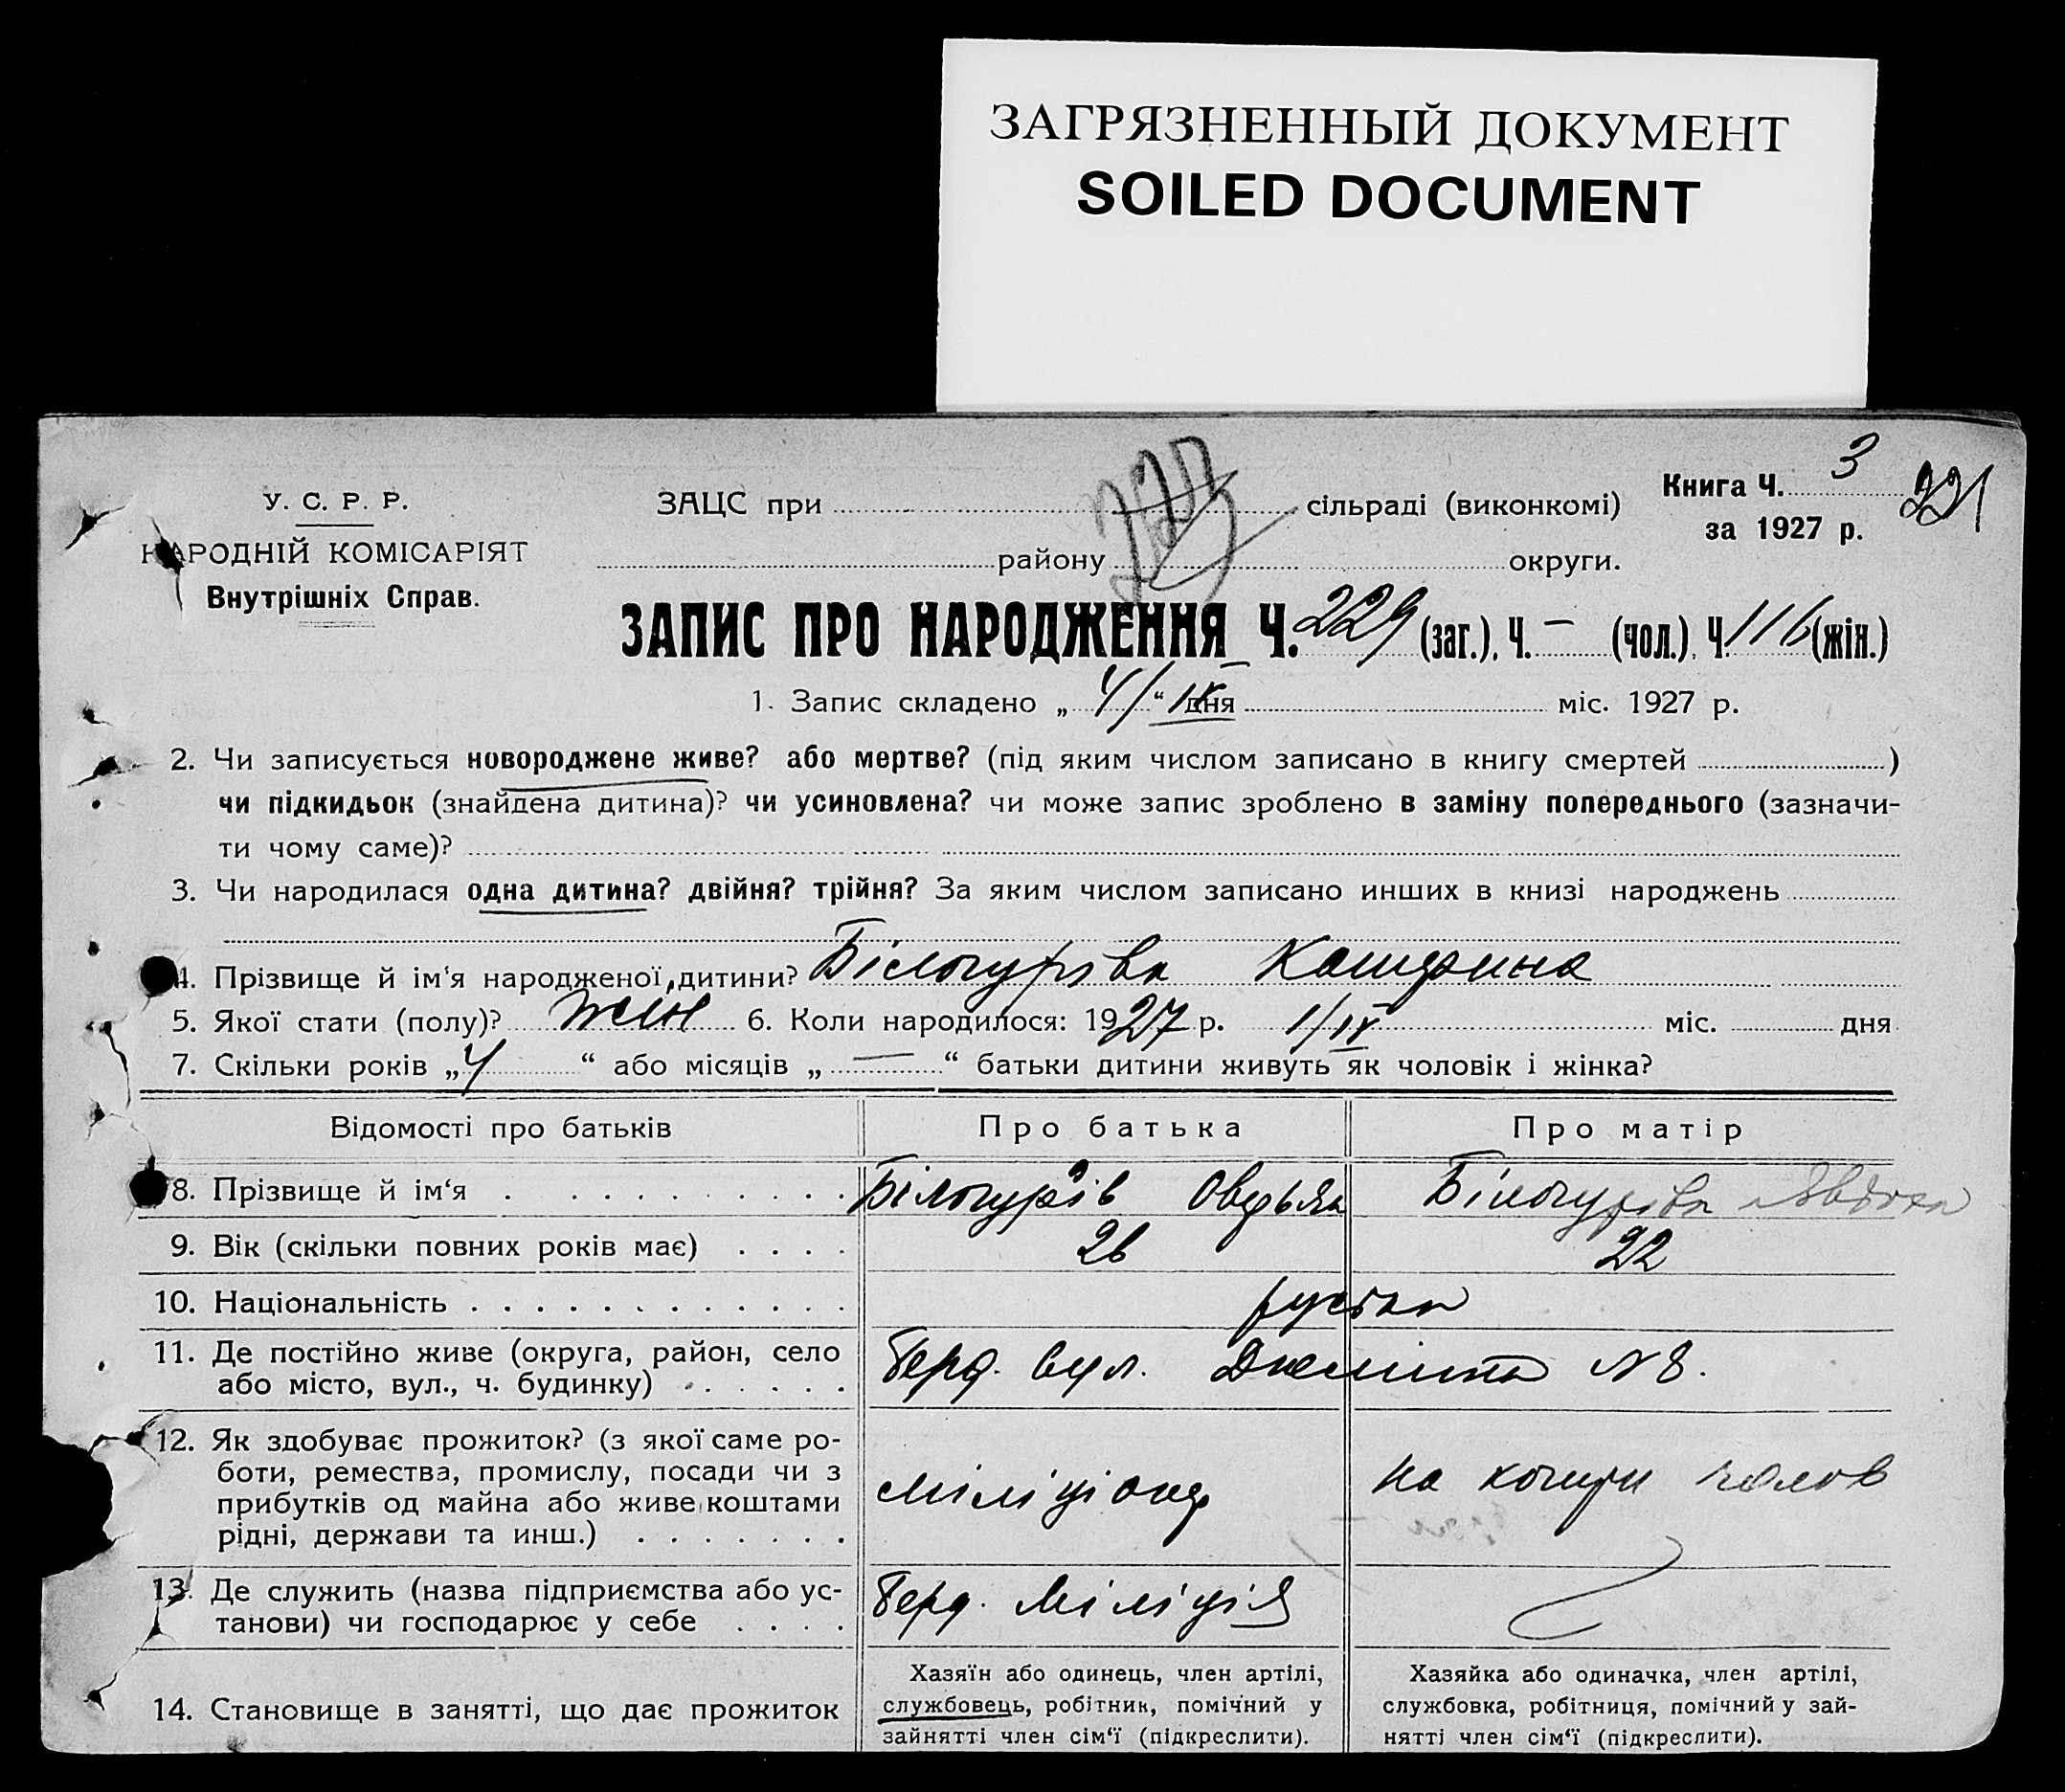 ЗАГРЯЗНЕННЫЙ ДОКУМЕНТ
SOILED DOCUMENT
Книга Ч. 3 221
за 1927 р.
У. С. Р. Р.
НАРОДНІЙ КОМІСАРІЯТ
Внутрішніх Справ.
ЗАЦС при сільраді (виконкомі)
району округи.
ЗАПИС ПРО НАРОДЖЕННЯ Ч. 229 (заг.), Ч. — (чол.), Ч. 116 (жін.)
1. Запис складено „4/“ IX дня міс. 1927 р.
2. Чи записується новороджене живе? або мертве? (під яким числом записано в книгу смертей )
чи підкидьок (знайдена дитина)? чи усиновлена? чи може запис зроблено в заміну попереднього (зазначи-
ти чому саме)?
3. Чи народилася одна дитина? двійня? трійня? За яким числом записано инших в книзі народжень
4. Прізвище й ім‘я народженої дитини? Білогурова
5. Якої стати (полу)? жін 6. Коли народилося: 1927 р. 1/IX міс. дня
7. Скільки років „4“ або місяців „—“ батьки дитини живуть як чоловік і жінка?
Відомості про батьків Про батька Про матір
8. Прізвище й ім‘я Білогурів Білогурова
9. Вік (скільки повних років має) 26 22
10. Національність
11. Де постійно живе (округа, район, село
або місто, вул., ч. будинку)
Берд. вул. N 8.
12. Як здобуває прожиток? (з якої саме ро-
боти, ремества, промислу, посади чи з
прибутків од майна або живе коштами
рідні, держави та инш.)
міліціонер
на кошти чолов
13. Де служить (назва підприємства або ус-
танови) чи господарює у себе
Берд. Міліція
14. Становище в занятті, що дає прожиток
Хазяїн або одинець, член артілі,
службовець, робітник, помічний у
зайнятті член сім‘ї (підкреслити).
Хазяйка або одиначка, член артілі,
службовка, робітниця, помічний у зай-
нятті член сім‘ї (підкреслити).